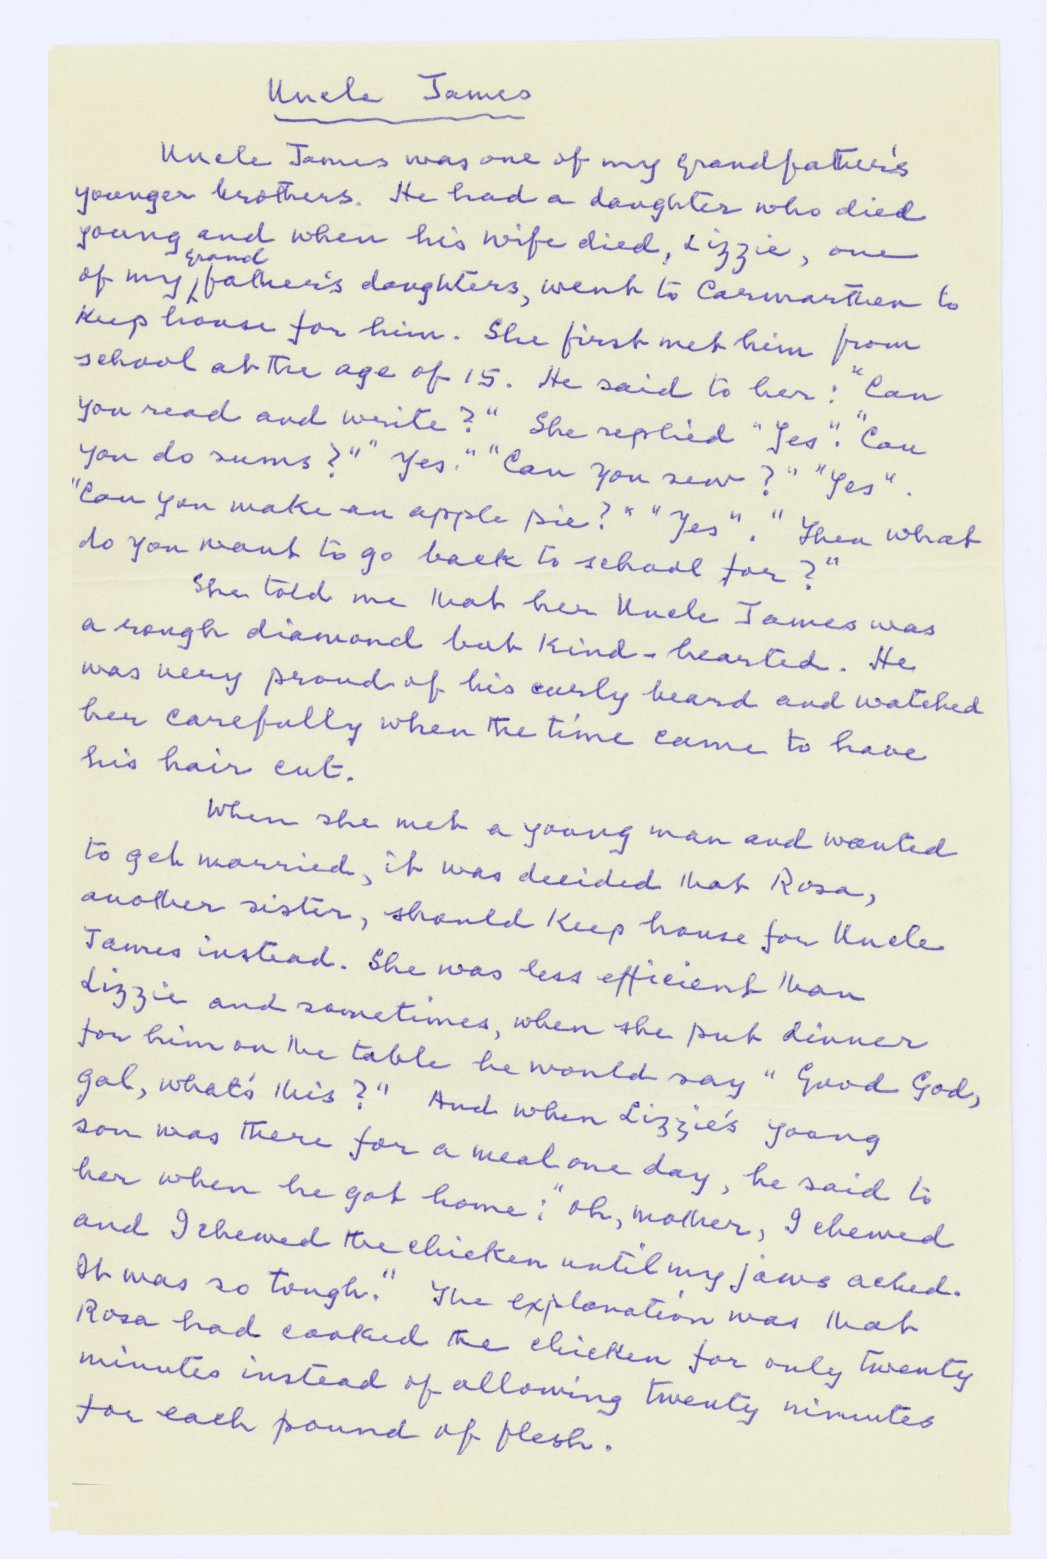 Uncle James
Uncle James was one of my grandfather's
younger brothers. He had a daughter who died
young and when his wife died, Lizzie, one
grand
of my father's daughters, went to Carmarthen to
keep house for him. She first met him from
school at the age of 15. He said to her: "Can
you read and write?" She replied "Yes". "Can
you do sums?" "Yes." "Can you sew?" "Yes".
"Can you make an apple pie?" "Yes". "Then what
do you want to go back to school for?"
She told me that her Uncle James was
a rough diamond but kind-hearted. He
was very proud of his curly beard and watched
her carefully when the time came to have
his hair cut.
When she met a young man and wanted
to get married, it was decided that Rosa,
another sister, should keep house for Uncle
James instead. She was less efficient than
Lizzie and sometimes, when she put dinner
for him on the table he would say "Good God,
gal, what's this?" And when Lizzie's young
son was there for a meal one day, he said to
her when he got home: "Oh, mother, I chewed
and I chewed the chicken until my jaws ached.
It was so tough." The explanation was that
Rosa had cooked the chicken for only twenty
minutes instead of allowing twenty minutes
for each pound of flesh.